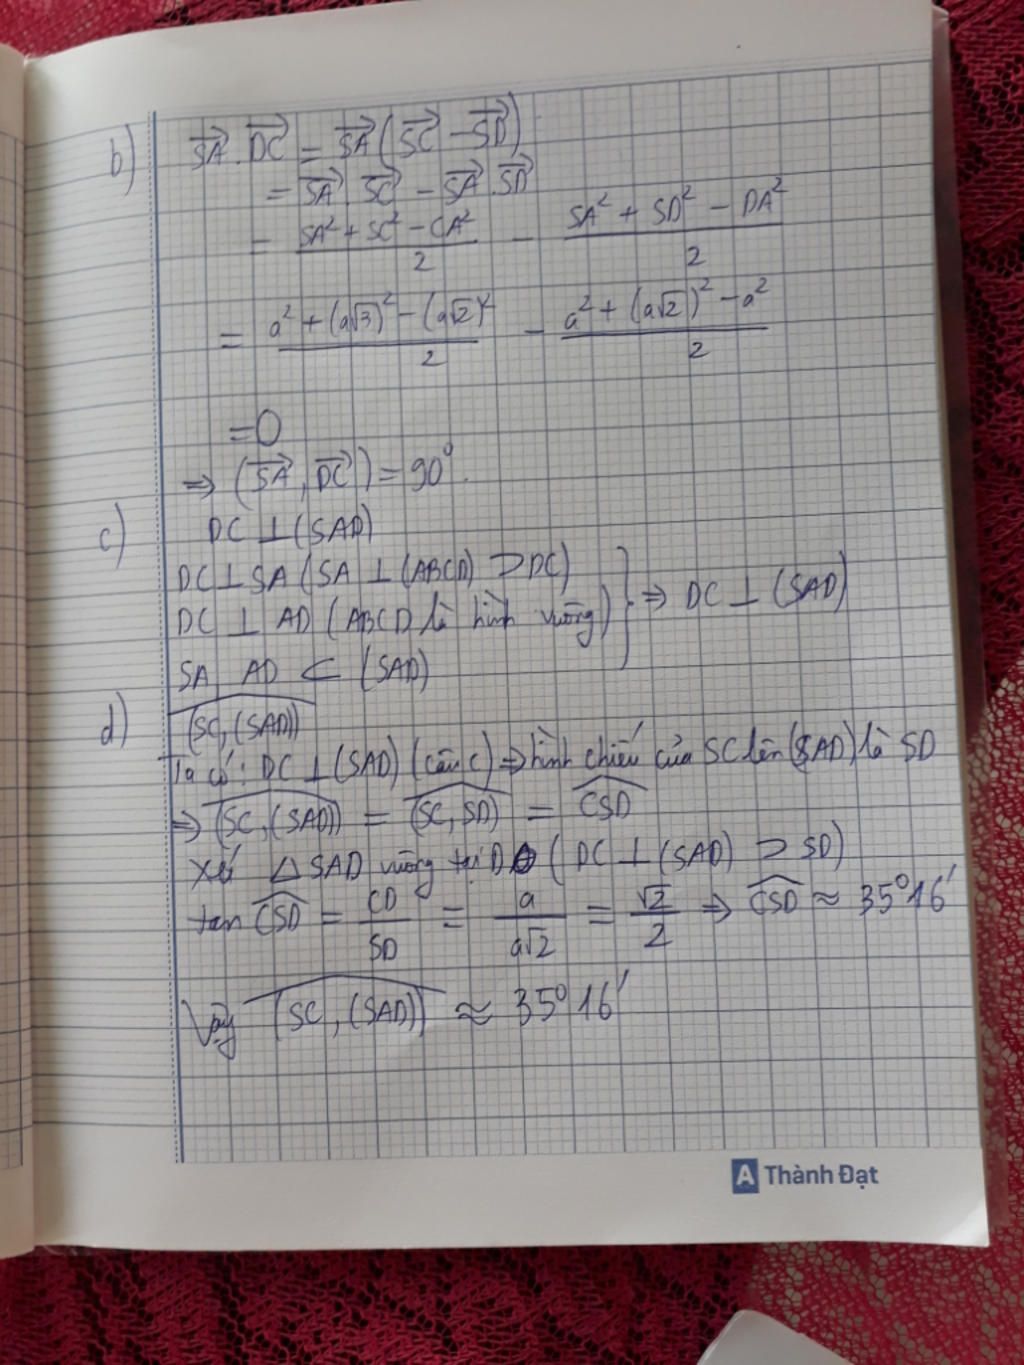 b) SA⃗.DC⃗ = SA⃗(SC⃗ - SD⃗)
= SA⃗.SC⃗ - SA⃗.SD⃗
= (SA² + SC² - CA²)/2 - (SA² + SD² - DA²)/2
= (a² + (a√3)² - (a√2)²)/2 - (a² + (a√2)² - a²)/2
= 0
⇒ (SA⃗, DC⃗) = 90°.
c) DC ⊥ (SAD)
DC ⊥ SA (SA ⊥ (ABCD) ⊃ DC)
DC ⊥ AD (ABCD là hình vuông) } ⇒ DC ⊥ (SAD)
SA AD ⊂ (SAD)
d) (SC, (SAD))
Ta có: DC ⊥ (SAD) (câu c) ⇒ hình chiếu của SC lên (SAD) là SD
⇒ (SC, (SAD)) = (SC, SD) = CSD
Xét △ SAD vuông tại D (DC ⊥ (SAD) ⊃ SD)
tan CSD = CD/SD = a/a√2 = √2/2 ⇒ CSD ≈ 35°16'
Vậy (SC, (SAD)) ≈ 35°16'
A Thành Đạt